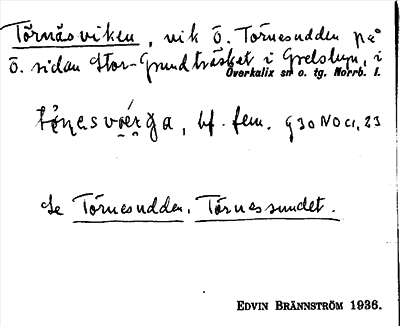 Törnäsviken, vik ö. Törnesudden på
ö. sidan Stor-Grundträsket i Grelsbyn, i
Överkalix sn o. tg. Norrb. l.
bf. fem. 930 NO c1, 23
Se Törnesudden, Törnessundet.
EDVIN BRÄNNSTRÖM 1936.